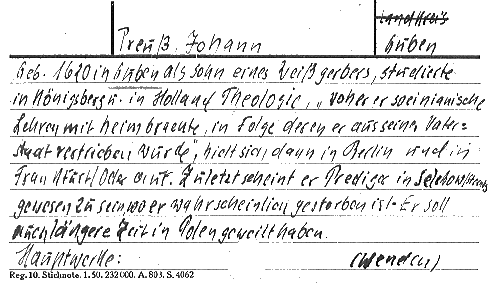 Landkreis
Preuß, Johann Guben
Geb. 1620 in Guben als Sohn eines Weißgerbers, studierte
in Königsberg u. in Holland Theologie, „woher er socinianische
Lehren mit heimbrachte, in Folge deren er aus seiner Vater=
stadt vertrieben wurde", hielt sich dann in Berlin und in
Frankfurt/Oder auf. Zuletzt scheint er Prediger in Selchow/
gewesen zu sein wo er wahrscheinlich gestorben ist. Er soll
auch längere Zeit in Polen geweilt haben.
Hauptwerke: (wenden)
Reg. 10. Stichnote. 1. 50. 232000. A. 803. S. 4062